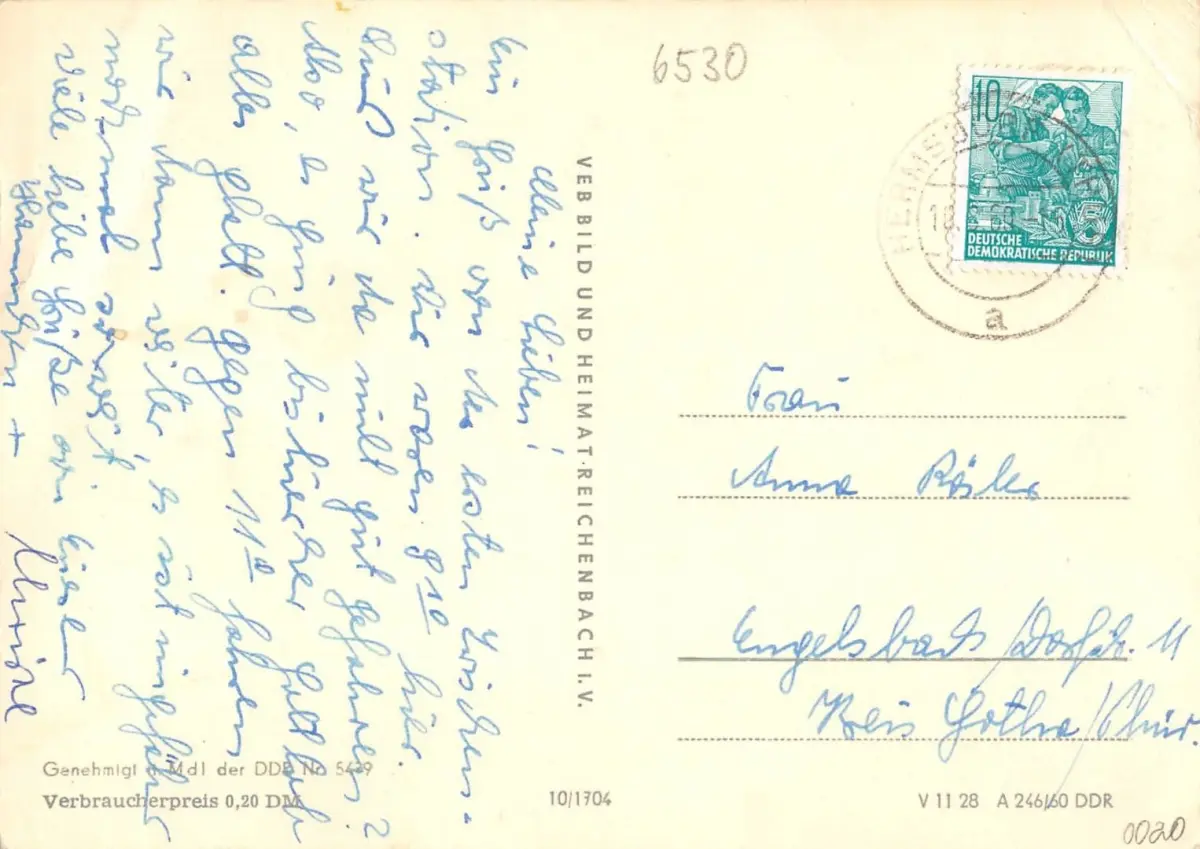 Meine Lieben!
Ein Gruß von der ersten Zwischen-
station. Wir waren 9 10 hier.
Sind wir da nicht gut gefahren?
Also, es ging bisher
alles glatt. Gegen 11 10 fahren
wir dann weiter, es ist ungefähr
nochmal soweit
Viele liebe Grüße von Eurer
+
VEB BILD UND HEIMAT · REICHENBACH I. V.
6530
10
5
DEUTSCHE
DEMOKRATISCHE REPUBLIK
HERMSDORF
a
Frau
Anna Rösler
Engelsbach/Dorfstr. 11
Kreis Gotha/Thür.
Genehmigt MdI der DDR Nr. 5429
Verbraucherpreis 0,20 DM
10/1704
V 11 28 A 246/60 DDR
0020